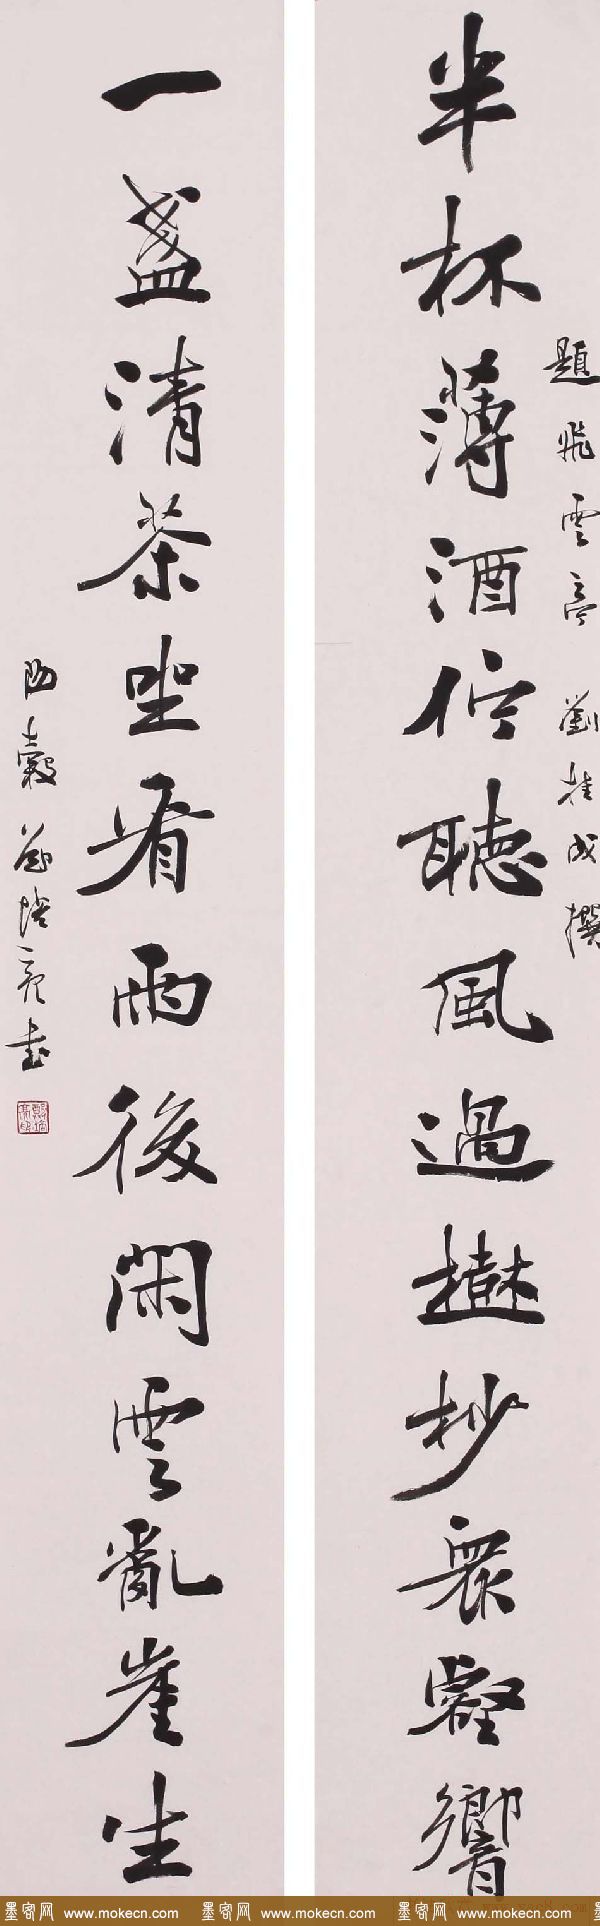 題飛雲亭 劉桂成撰
半杯薄酒佇聽風過樹杪衆壑響
一盞清茶坐看雨後閑雲亂崖生
陽穀 培亮書
墨客网 www.mokecn.com 墨客网 www.mokecn.com 墨客网 www.mokecn.com